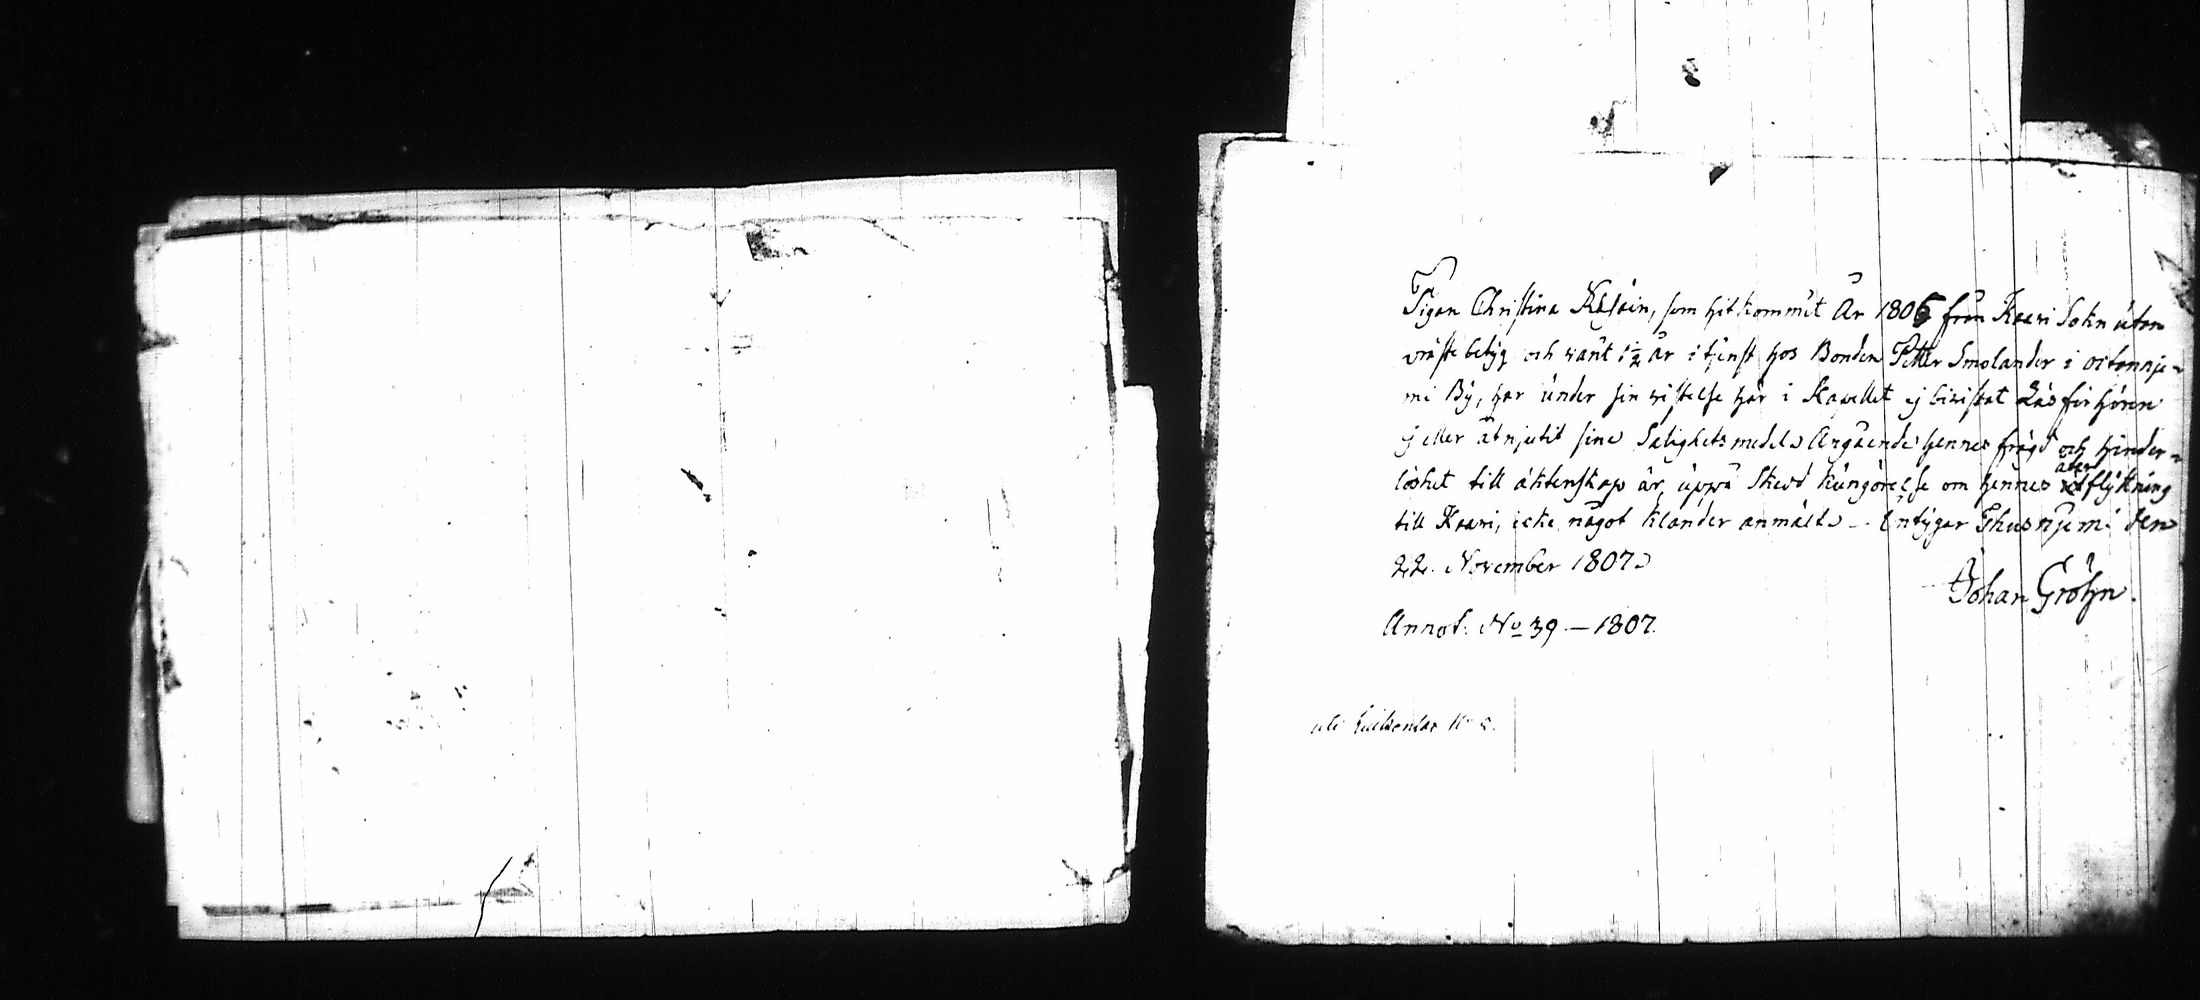 Pigan Christina Räsäin, som hitkommit År 1806 från Kaavi Sokn utan
präste betyg och varit 1 1/2 år i tjenst hos Bonden Petter Smolander i Ostonnje-
mi By, har under sin vistelse här i Kapellet ej bivistat Läsförhören
ej eller åtnjutit sine Salighets medel. Angående hennes frägd och hinder-
löshet till äktenskap är, uppå Skedd kungörelse om hennes åter flyttning
till Kaavi, icke något klander anmält. Intygar Thusnjemi den
22. November 1807.
Johan Gröhn.
Annot: No 39 — 1807.